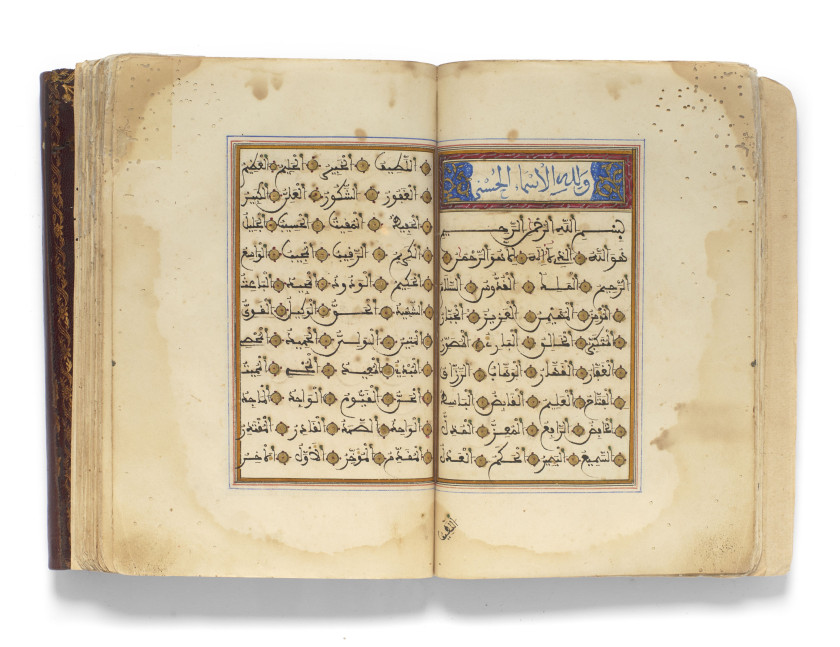 ولله الأسماء الحسنى
بسم الله الرحمن الرحيم
هو الله الذي لا إله إلا هو الرحمن
الرحيم الملك القدوس السلام
المؤمن المهيمن العزيز الجبار
المتكبر الخالق البارئ المصور
الغفار القهار الوهاب الرزاق
الفتاح العليم القابض الباسط
الخافض الرافع المعز المذل
السميع البصير الحكم العدل
اللطيف
اللطيف الخبير الحليم العظيم
الغفور الشكور العلي الكبير
الحفيظ المقيت الحسيب الجليل
الكريم الرقيب المجيب الواسع
الحكيم الودود المجيد الباعث
الشهيد الحق الوكيل القوي
المتين الولي الحميد المحصي
المبدئ المعيد المحيي المميت
الحي القيوم الواجد الماجد
الواحد الصمد القادر المقتدر
المقدم المؤخر الأول الآخر